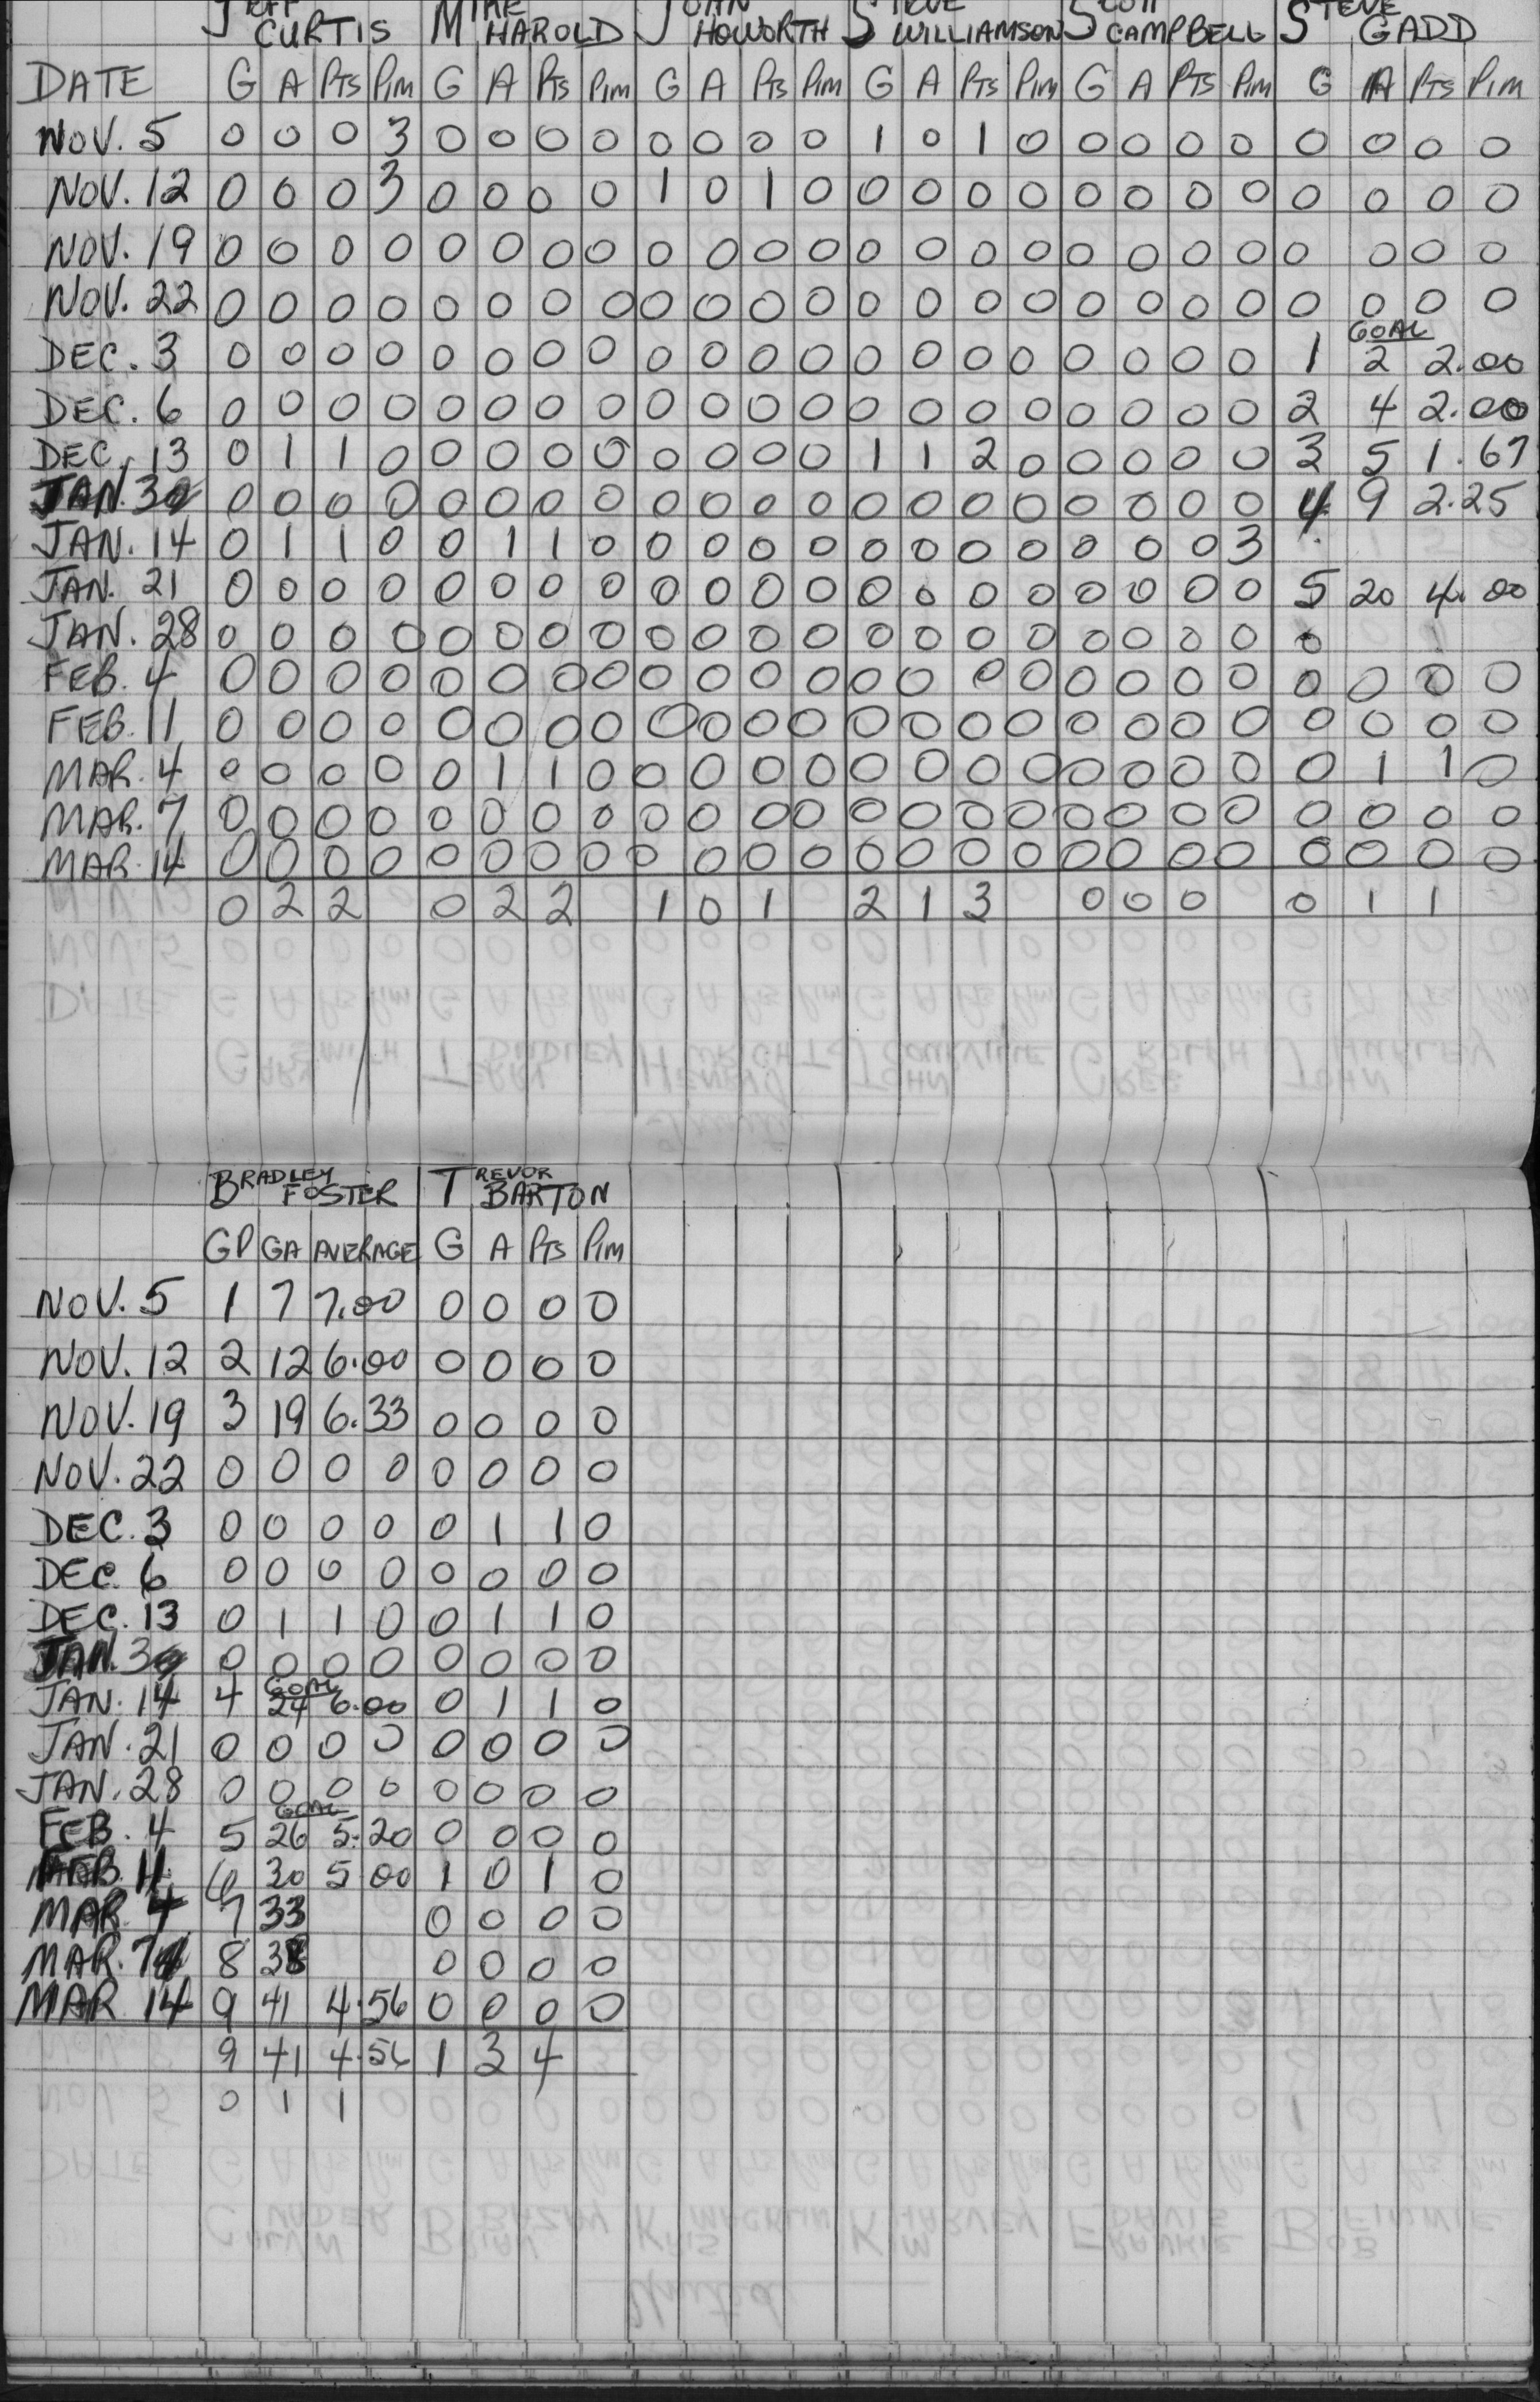 JEFF CURTIS MIKE HAROLD JOHN HOWORTH STEVE WILLIAMSON SCOTT CAMPBELL STEVE GADD
DATE G A PTS PIM G A PTS PIM G A PTS PIM G A PTS PIM G A PTS PIM G A PTS PIM
NOV. 5 0 0 0 3 0 0 0 0 0 0 0 0 1 0 1 0 0 0 0 0 0 0 0 0
NOV. 12 0 0 0 3 0 0 0 0 1 0 1 0 0 0 0 0 0 0 0 0 0 0 0 0
NOV. 19 0 0 0 0 0 0 0 0 0 0 0 0 0 0 0 0 0 0 0 0 0 0 0 0
NOV. 22 0 0 0 0 0 0 0 0 0 0 0 0 0 0 0 0 0 0 0 0 0 0 0 0
GOAL
DEC. 3 0 0 0 0 0 0 0 0 0 0 0 0 0 0 0 0 0 0 0 0 1 2 2.00
DEC. 6 0 0 0 0 0 0 0 0 0 0 0 0 0 0 0 0 0 0 0 0 2 4 2.00
DEC. 13 0 1 1 0 0 0 0 0 0 0 0 0 1 1 2 0 0 0 0 0 3 5 1.67
JAN. 3 0 0 0 0 0 0 0 0 0 0 0 0 0 0 0 0 0 0 0 0 4 9 2.25
JAN. 14 0 1 1 0 0 1 1 0 0 0 0 0 0 0 0 0 0 0 0 3
JAN. 21 0 0 0 0 0 0 0 0 0 0 0 0 0 0 0 0 0 0 0 0 5 20 4.00
JAN. 28 0 0 0 0 0 0 0 0 0 0 0 0 0 0 0 0 0 0 0 0 0
FEB. 4 0 0 0 0 0 0 0 0 0 0 0 0 0 0 0 0 0 0 0 0 0 0 0 0
FEB. 11 0 0 0 0 0 0 0 0 0 0 0 0 0 0 0 0 0 0 0 0 0 0 0 0
MAR. 4 0 0 0 0 0 1 1 0 0 0 0 0 0 0 0 0 0 0 0 0 0 1 1 0
MAR. 7 0 0 0 0 0 0 0 0 0 0 0 0 0 0 0 0 0 0 0 0 0 0 0 0
MAR. 14 0 0 0 0 0 0 0 0 0 0 0 0 0 0 0 0 0 0 0 0 0 0 0 0
0 2 2 0 2 2 1 0 1 2 1 3 0 0 0 0 1 1
BRADLEY FOSTER TREVOR BARTON
GP GA AVERAGE G A PTS PIM
NOV. 5 1 7 7.00 0 0 0 0
NOV. 12 2 12 6.00 0 0 0 0
NOV. 19 3 19 6.33 0 0 0 0
NOV. 22 0 0 0 0 0 0 0 0
DEC. 3 0 0 0 0 0 1 1 0
DEC. 6 0 0 0 0 0 0 0 0
DEC. 13 0 1 1 0 0 1 1 0
JAN. 3 0 0 0 0 0 0 0 0
GOAL
JAN. 14 4 24 6.00 0 1 1 0
JAN. 21 0 0 0 0 0 0 0 0
JAN. 28 0 0 0 0 0 0 0 0
GOAL
FEB. 4 5 26 5.20 0 0 0 0
FEB. 11 6 30 5 00 1 0 1 0
MAR. 4 7 33 0 0 0 0
MAR. 7 8 38 0 0 0 0
MAR 14 9 41 4.56 0 0 0 0
9 41 4.56 1 3 4
0 1 1